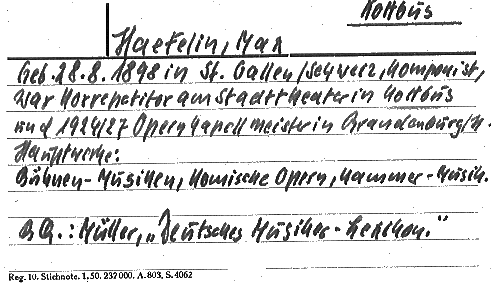 Kottbus
Haefelin, Max
Geb. 28.8.1898 in St. Gallen/Schweiz, Komponist,
war Korrepetitor am Stadttheater in Kottbus
und 1924/27 Opernkapellmeister in Brandenburg/H.
Hauptwerke:
Bühnen-Musiken, Komische Opern, Kammer-Musik.
BQ.: Müller, „Deutsches Musiker-Lexikon."
Reg. 10. Stichnote. 1,50. 237000. A. 803, S. 4062